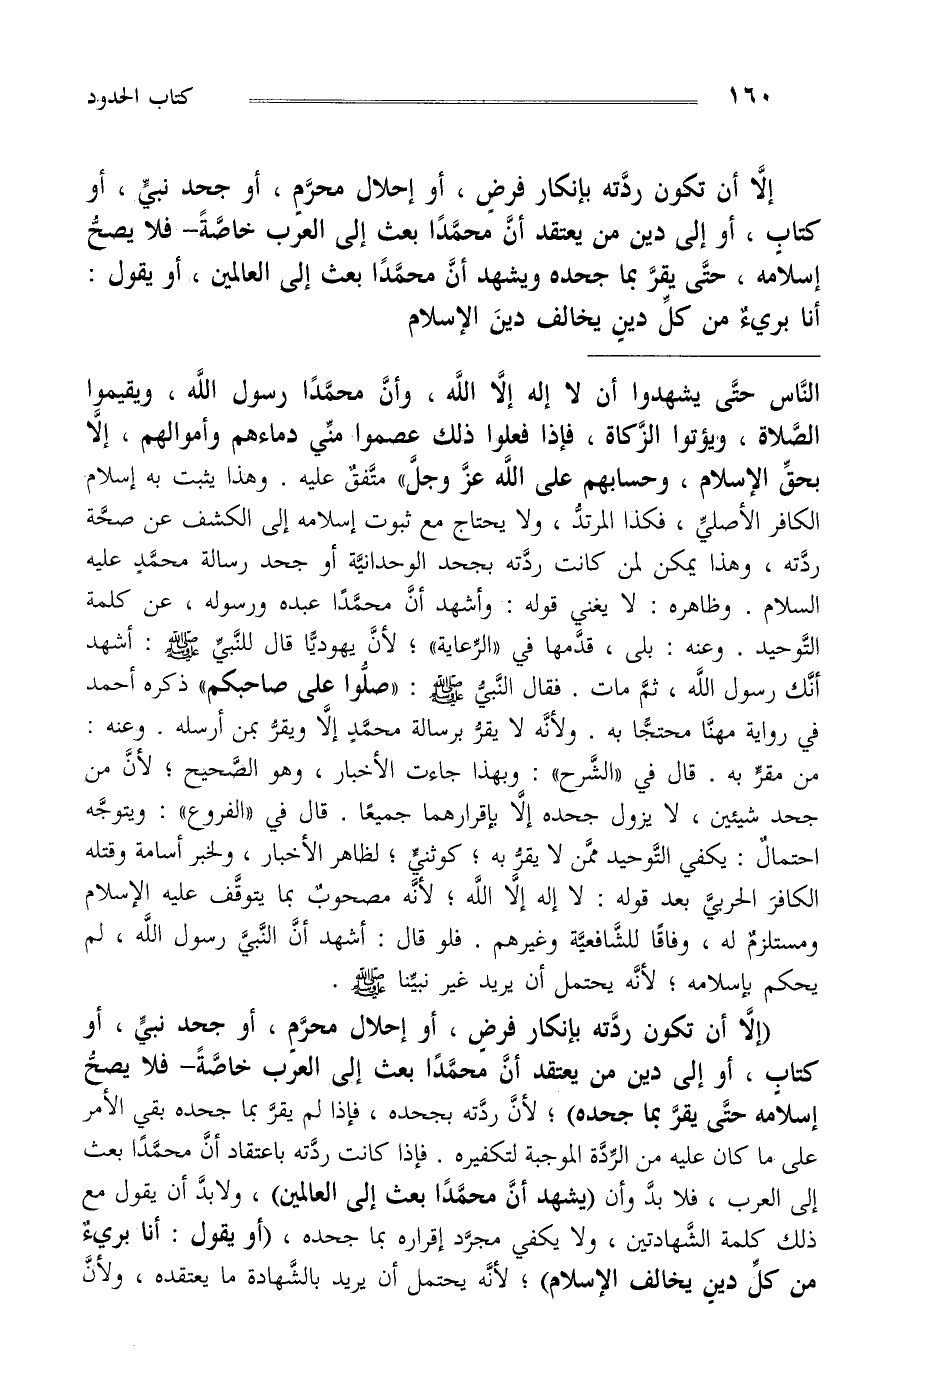 ١٦٠ كتاب الحدود
إلَّا أن تكون ردَّته بإنكار فرضٍ ، أو إحلال محرَّمٍ ، أو جحد نبيٍّ ، أو
كتابٍ ، أو إلى دين من يعتقد أنَّ محمَّدًا بعث إلى العرب خاصَّةً – فلا يصحُّ
إسلامه ، حتَّى يقرَّ بما جحده ويشهد أنَّ محمَّدًا بعث إلى العالمين ، أو يقول :
أنا بريءٌ من كلِّ دينٍ يخالف دينَ الإسلام
النَّاس حتَّى يشهدوا أن لا إله إلَّا اللَّه ، وأنَّ محمَّدًا رسول اللَّه ، ويقيموا
الصَّلاة ، ويؤتوا الزَّكاة ، فإذا فعلوا ذلك عصموا منِّي دماءهم وأموالهم ، إلَّا
بحقِّ الإسلام ، وحسابهم على اللَّه عزَّ وجلَّ» متَّفقٌ عليه . وهذا يثبت به إسلام
الكافر الأصليِّ ، فكذا المرتدُّ ، ولا يحتاج مع ثبوت إسلامه إلى الكشف عن صحَّة
ردَّته ، وهذا يمكن لمن كانت ردَّته بجحد الوحدانيَّة أو جحد رسالة محمَّدٍ عليه
السلام . وظاهره : لا يغني قوله : وأشهد أنَّ محمَّدًا عبده ورسوله ، عن كلمة
التَّوحيد . وعنه : بلى ، قدَّمها في «الرِّعاية» ؛ لأنَّ يهوديًّا قال للنَّبيِّ ﷺ : أشهد
أنَّك رسول اللَّه ، ثمَّ مات . فقال النَّبيُّ ﷺ : «صلُّوا على صاحبكم» ذكره أحمد
في رواية مهنَّا محتجًّا به . ولأنَّه لا يقرُّ برسالة محمَّدٍ إلَّا ويقرُّ بمن أرسله . وعنه :
من مقرٍّ به . قال في «الشَّرح» : وبهذا جاءت الأخبار ، وهو الصَّحيح ؛ لأنَّ من
جحد شيئين ، لا يزول جحده إلَّا بإقرارهما جميعًا . قال في «الفروع» : ويتوجَّه
احتمالٌ : يكفي التَّوحيد ممَّن لا يقرُّ به ؛ كوثنيٍّ ؛ لظاهر الأخبار ، ولخبر أسامة وقتله
الكافرَ الحربيَّ بعد قوله : لا إله إلَّا اللَّه ؛ لأنَّه مصحوبٌ بما يتوقَّف عليه الإسلام
ومستلزمٌ له ، وفاقًا للشَّافعيَّة وغيرهم . فلو قال : أشهد أنَّ النَّبيَّ رسول اللَّه ، لم
يحكم بإسلامه ؛ لأنَّه يحتمل أن يريد غير نبيِّنا ﷺ .
(إلَّا أن تكون ردَّته بإنكار فرضٍ ، أو إحلال محرَّمٍ ، أو جحد نبيٍّ ، أو
كتابٍ ، أو إلى دين من يعتقد أنَّ محمَّدًا بعث إلى العرب خاصَّةً – فلا يصحُّ
إسلامه حتَّى يقرَّ بما جحده) ؛ لأنَّ ردَّته بجحده ، فإذا لم يقرَّ بما جحده بقي الأمر
على ما كان عليه من الرِّدَّة الموجبة لتكفيره . فإذا كانت ردَّته باعتقاد أنَّ محمَّدًا بعث
إلى العرب ، فلا بدَّ وأن (يشهد أنَّ محمَّدًا بعث إلى العالمين) ، ولابدَّ أن يقول مع
ذلك كلمة الشَّهادتين ، ولا يكفي مجرَّد إقراره بما جحده ، (أو يقول : أنا بريءٌ
من كلِّ دينٍ يخالف الإسلام) ؛ لأنَّه يحتمل أن يريد بالشَّهادة ما يعتقده ، ولأنَّ